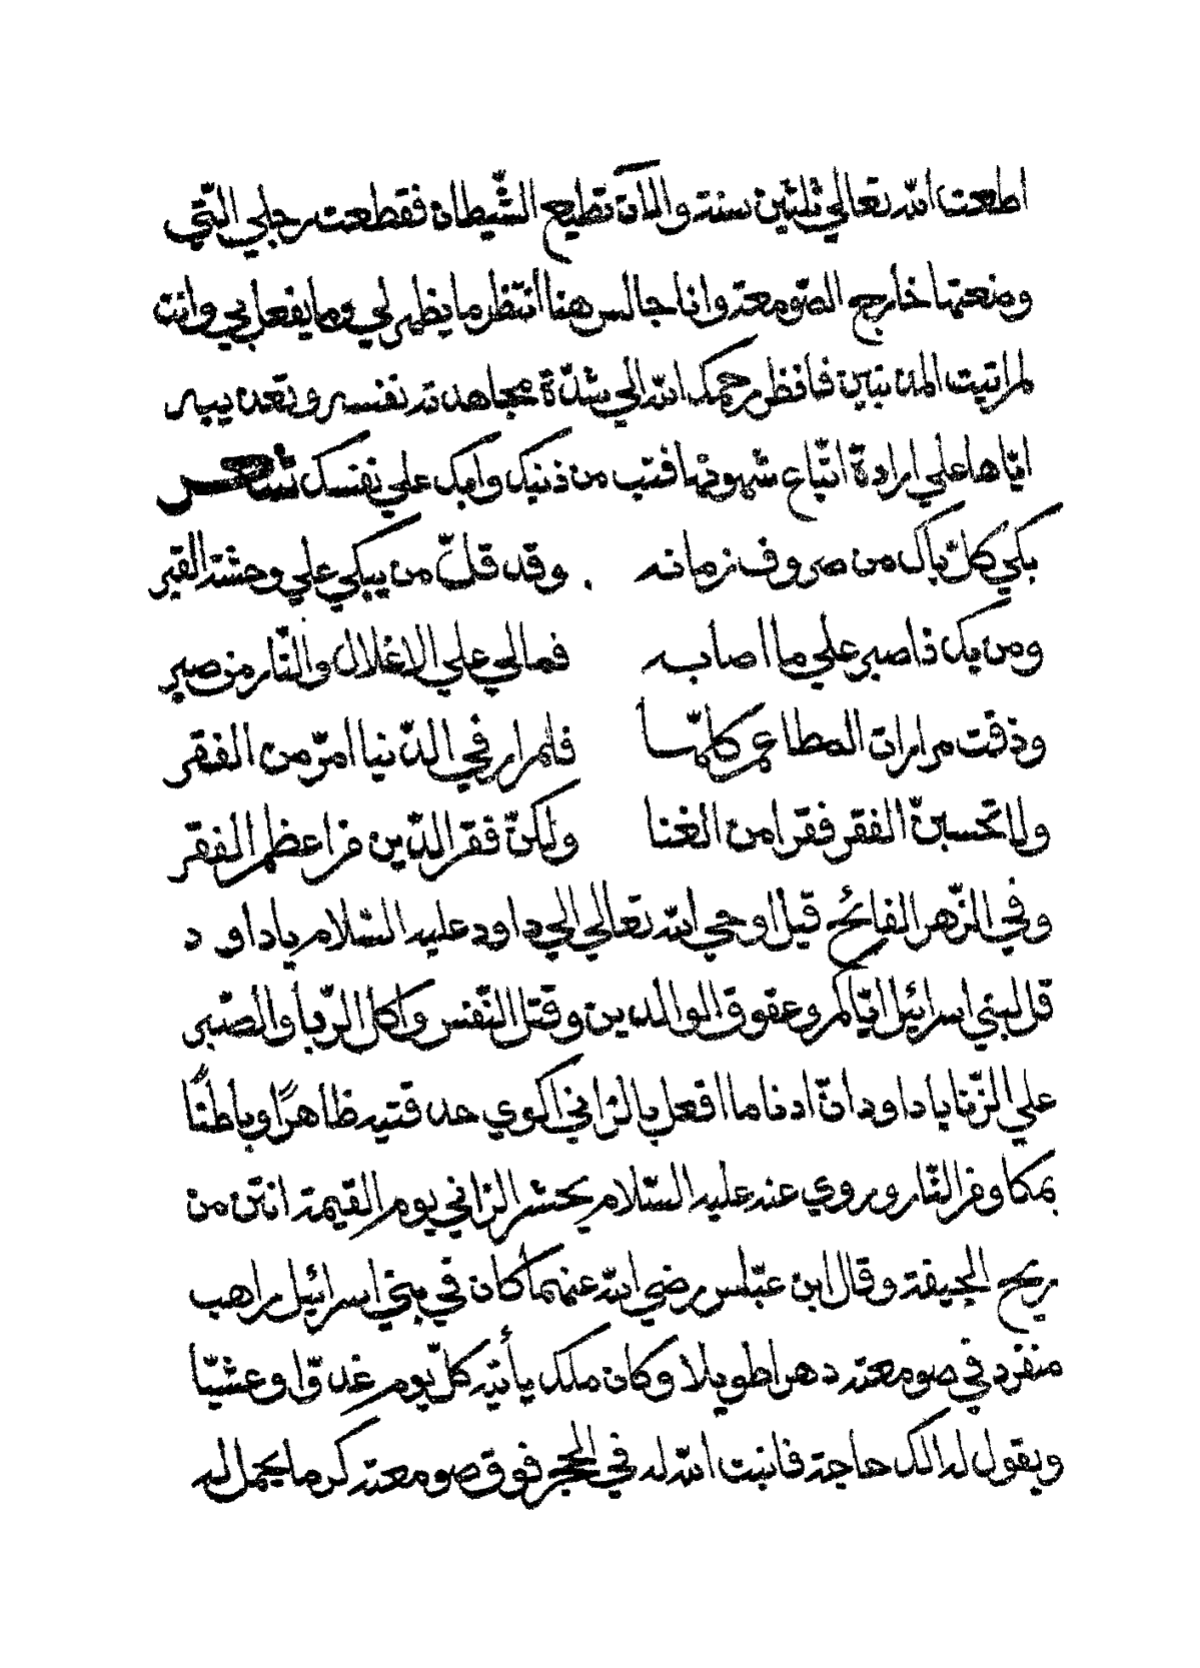 اطعت الله تعالي ثلثين سنة والآن تطيع الشّيطان فقطعت رجلي الّتي
وضعتها خارج الصّومعة وانا جالس هنا انتظر ما يظهر لي وما يفعل بي وانت
لم اتيت المذنبين فانظر رحمك الله الي شدّة مجاهدته نفسه وتعذيبه
ايّاها علي ارادة اتّباع شهوتها فتب من ذنبك وابك علي نفسك شعر
بكي كلّ باك من صروف زمانه . وقد قلّ من يبكي علي وحشة القبر
ومن يك ذا صبر علي ما اصابه فمالي علي الاغلال والنّار من صبر
وذقت مرارات المطاعم كلّها فلم ار في الدّنيا امرّ من الفقر
ولا تحسبنّ الفقر فقرا من الغنا ولكنّ فقر الدّين من اعظم الفقر
وفي الزّهر الفائح قيل اوحي الله تعالي الي داود عليه السّلام يا داو د
قل لبني اسرائيل ايّاكم وعقوق الوالدين وقتل النّفس واكل الرّبا والصّبر
علي الزّنا يا داود انّ ادنا ما افعل بالزاني اكوي حدقتيه ظاهرًا وباطنًا
بمكاو من النّار وروي عنه عليه السّلام يحشر الزاني يوم القيمة انتن من
ريح الجيفة وقال ابن عبّاس رضي الله عنهما كان في بني اسرائيل راهب
منفرد في صومعته دهرا طويلا وكان ملك يأتيه كلّ يوم غدوّا وعشيّا
ويقول له الك حاجة فانبت الله له في الحجر فوق صومعته كرما يحمل له